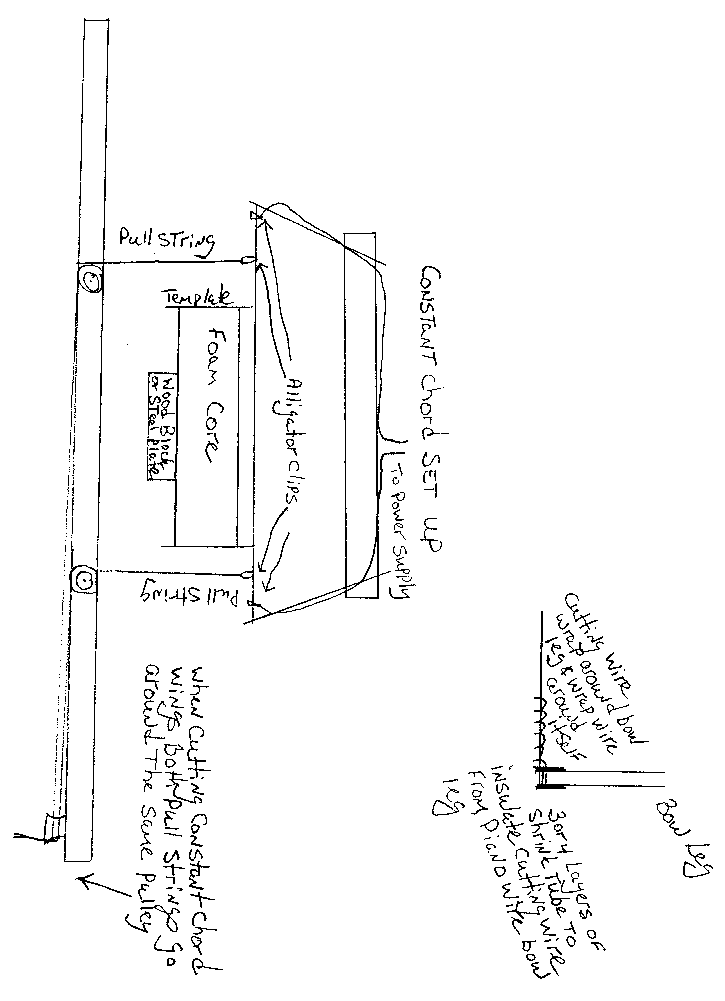 CONSTANT Chord SET UP
To Power Supply
Alligator Clips
Pull STring
Template
Foam Core
Wood Block
or STeel Plate
Pull String
when Cutting Constant Chord
wings Both Pull Strings go
around The Same Pulley
Bow Leg
Cutting wire
wrap around bow
leg & wrap wire
around
itself
3 or 4 Layers of
shrink Tube To
insulate Cutting wire
From Piano wire bow
leg